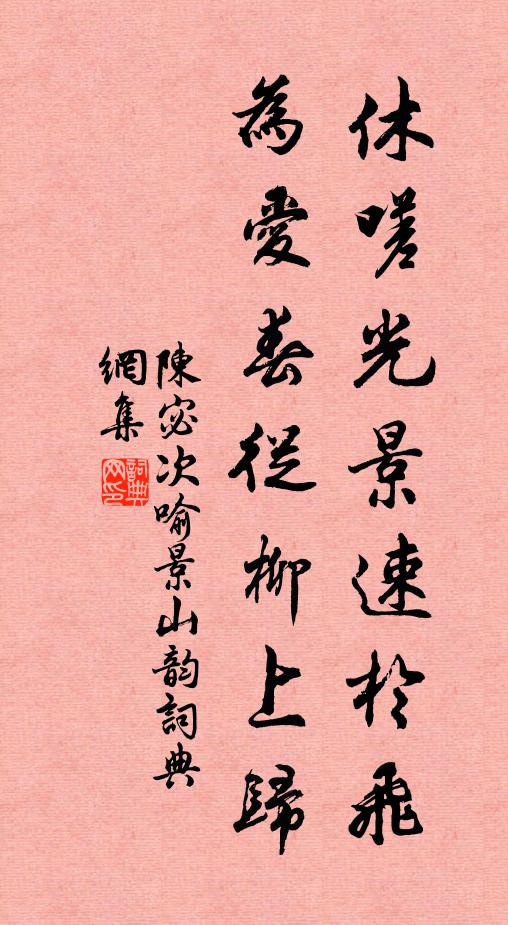 休嗟光景速於飛
為愛春從柳上歸
陳宓次喻景山韵詞典
網集
詞典
网印